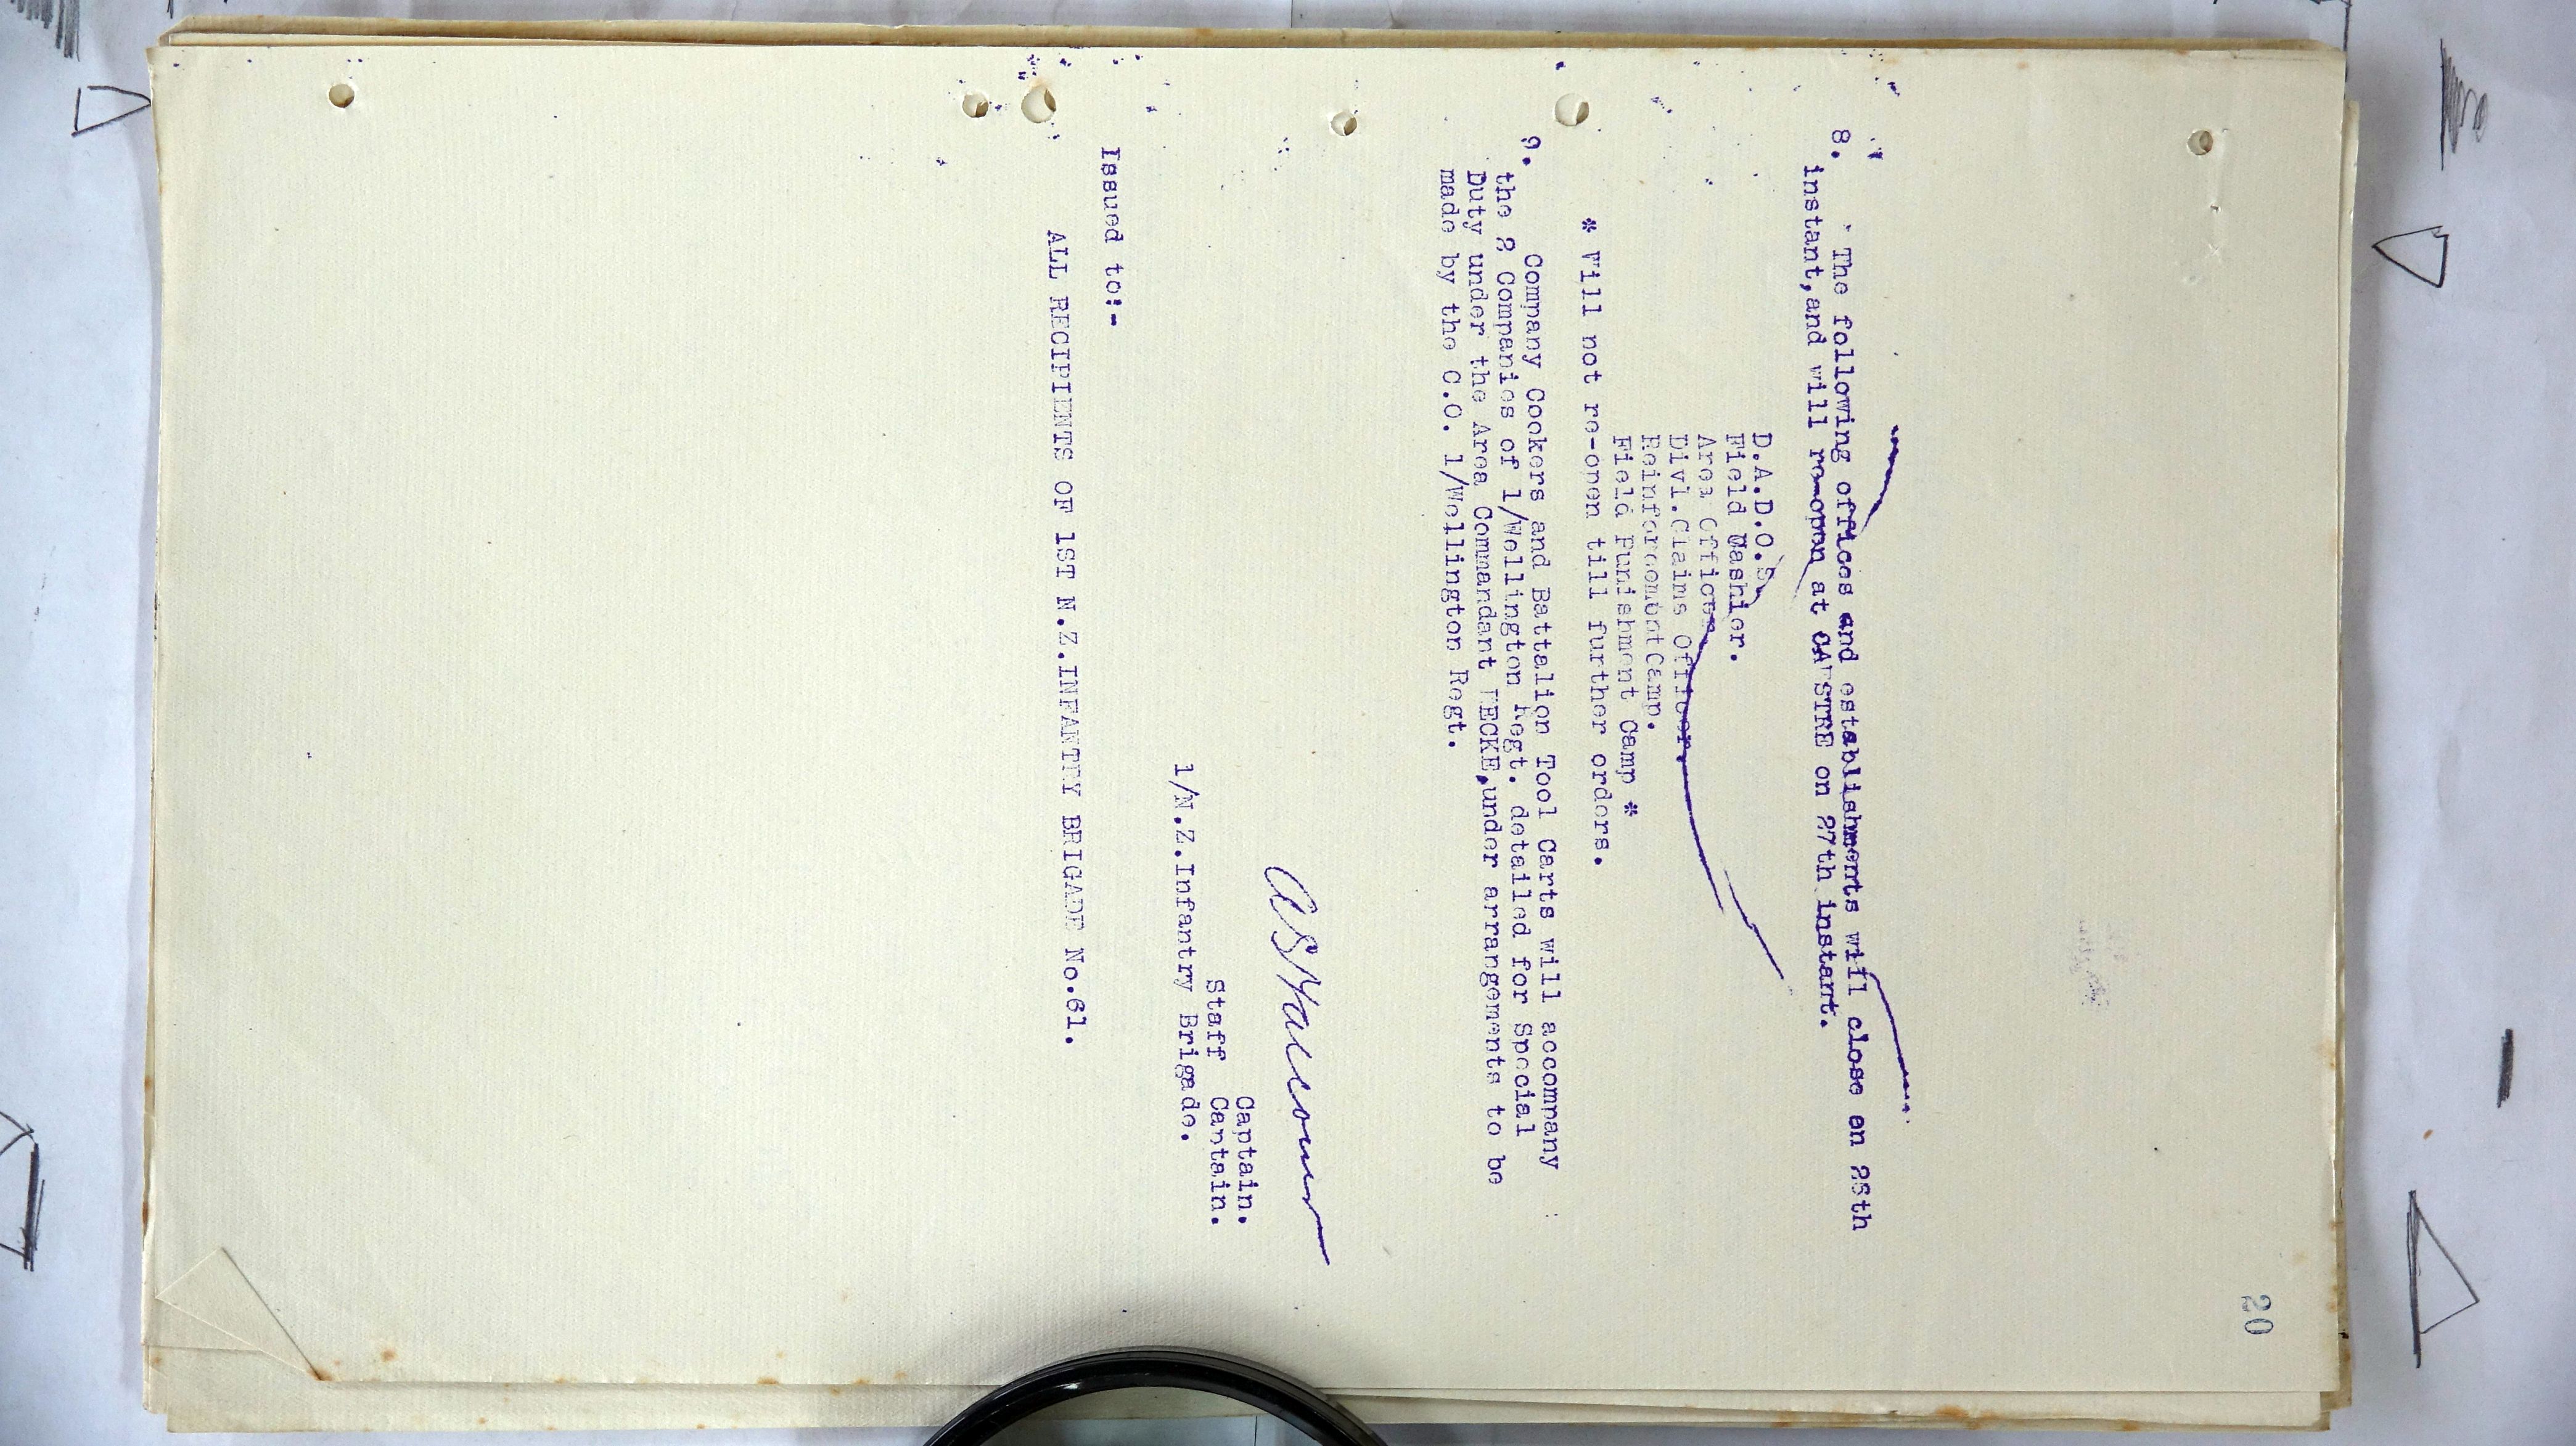 20
8. The following offices and establishments will close on 26th
instant,and will re-open at CAESTRE on 27th instant.
D.A.D.O.S.
Field Cashier.
Area Officer.
Divl.Claims Officer.
Reinforcement Camp.
Field Punishment Camp *
* Will not re-open till further orders.
9. Company Cookers and Battalion Tool Carts will accompany
the 2 Companies of 1/Wellington Regt. detailed for Special
Duty under the Area Commandant under arrangements to be
made by the C.O. 1/Wellington Regt.
Captain.
Staff Captain.
1/N.Z.Infantry Brigade.
Issued to:-
ALL RECIPIENTS OF 1ST N.Z.INFANTRY BRIGADE No.61.